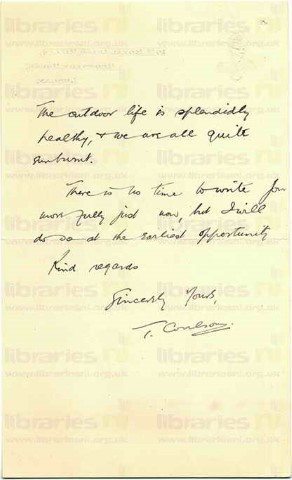 The outdoor life is splendidly
healthy, & we are all quite
sunburnt.
There is no time to write you
more fully just now, but I will
do so at the earliest opportunity
Kind regards
Sincerely Yours,
T. Coulson.